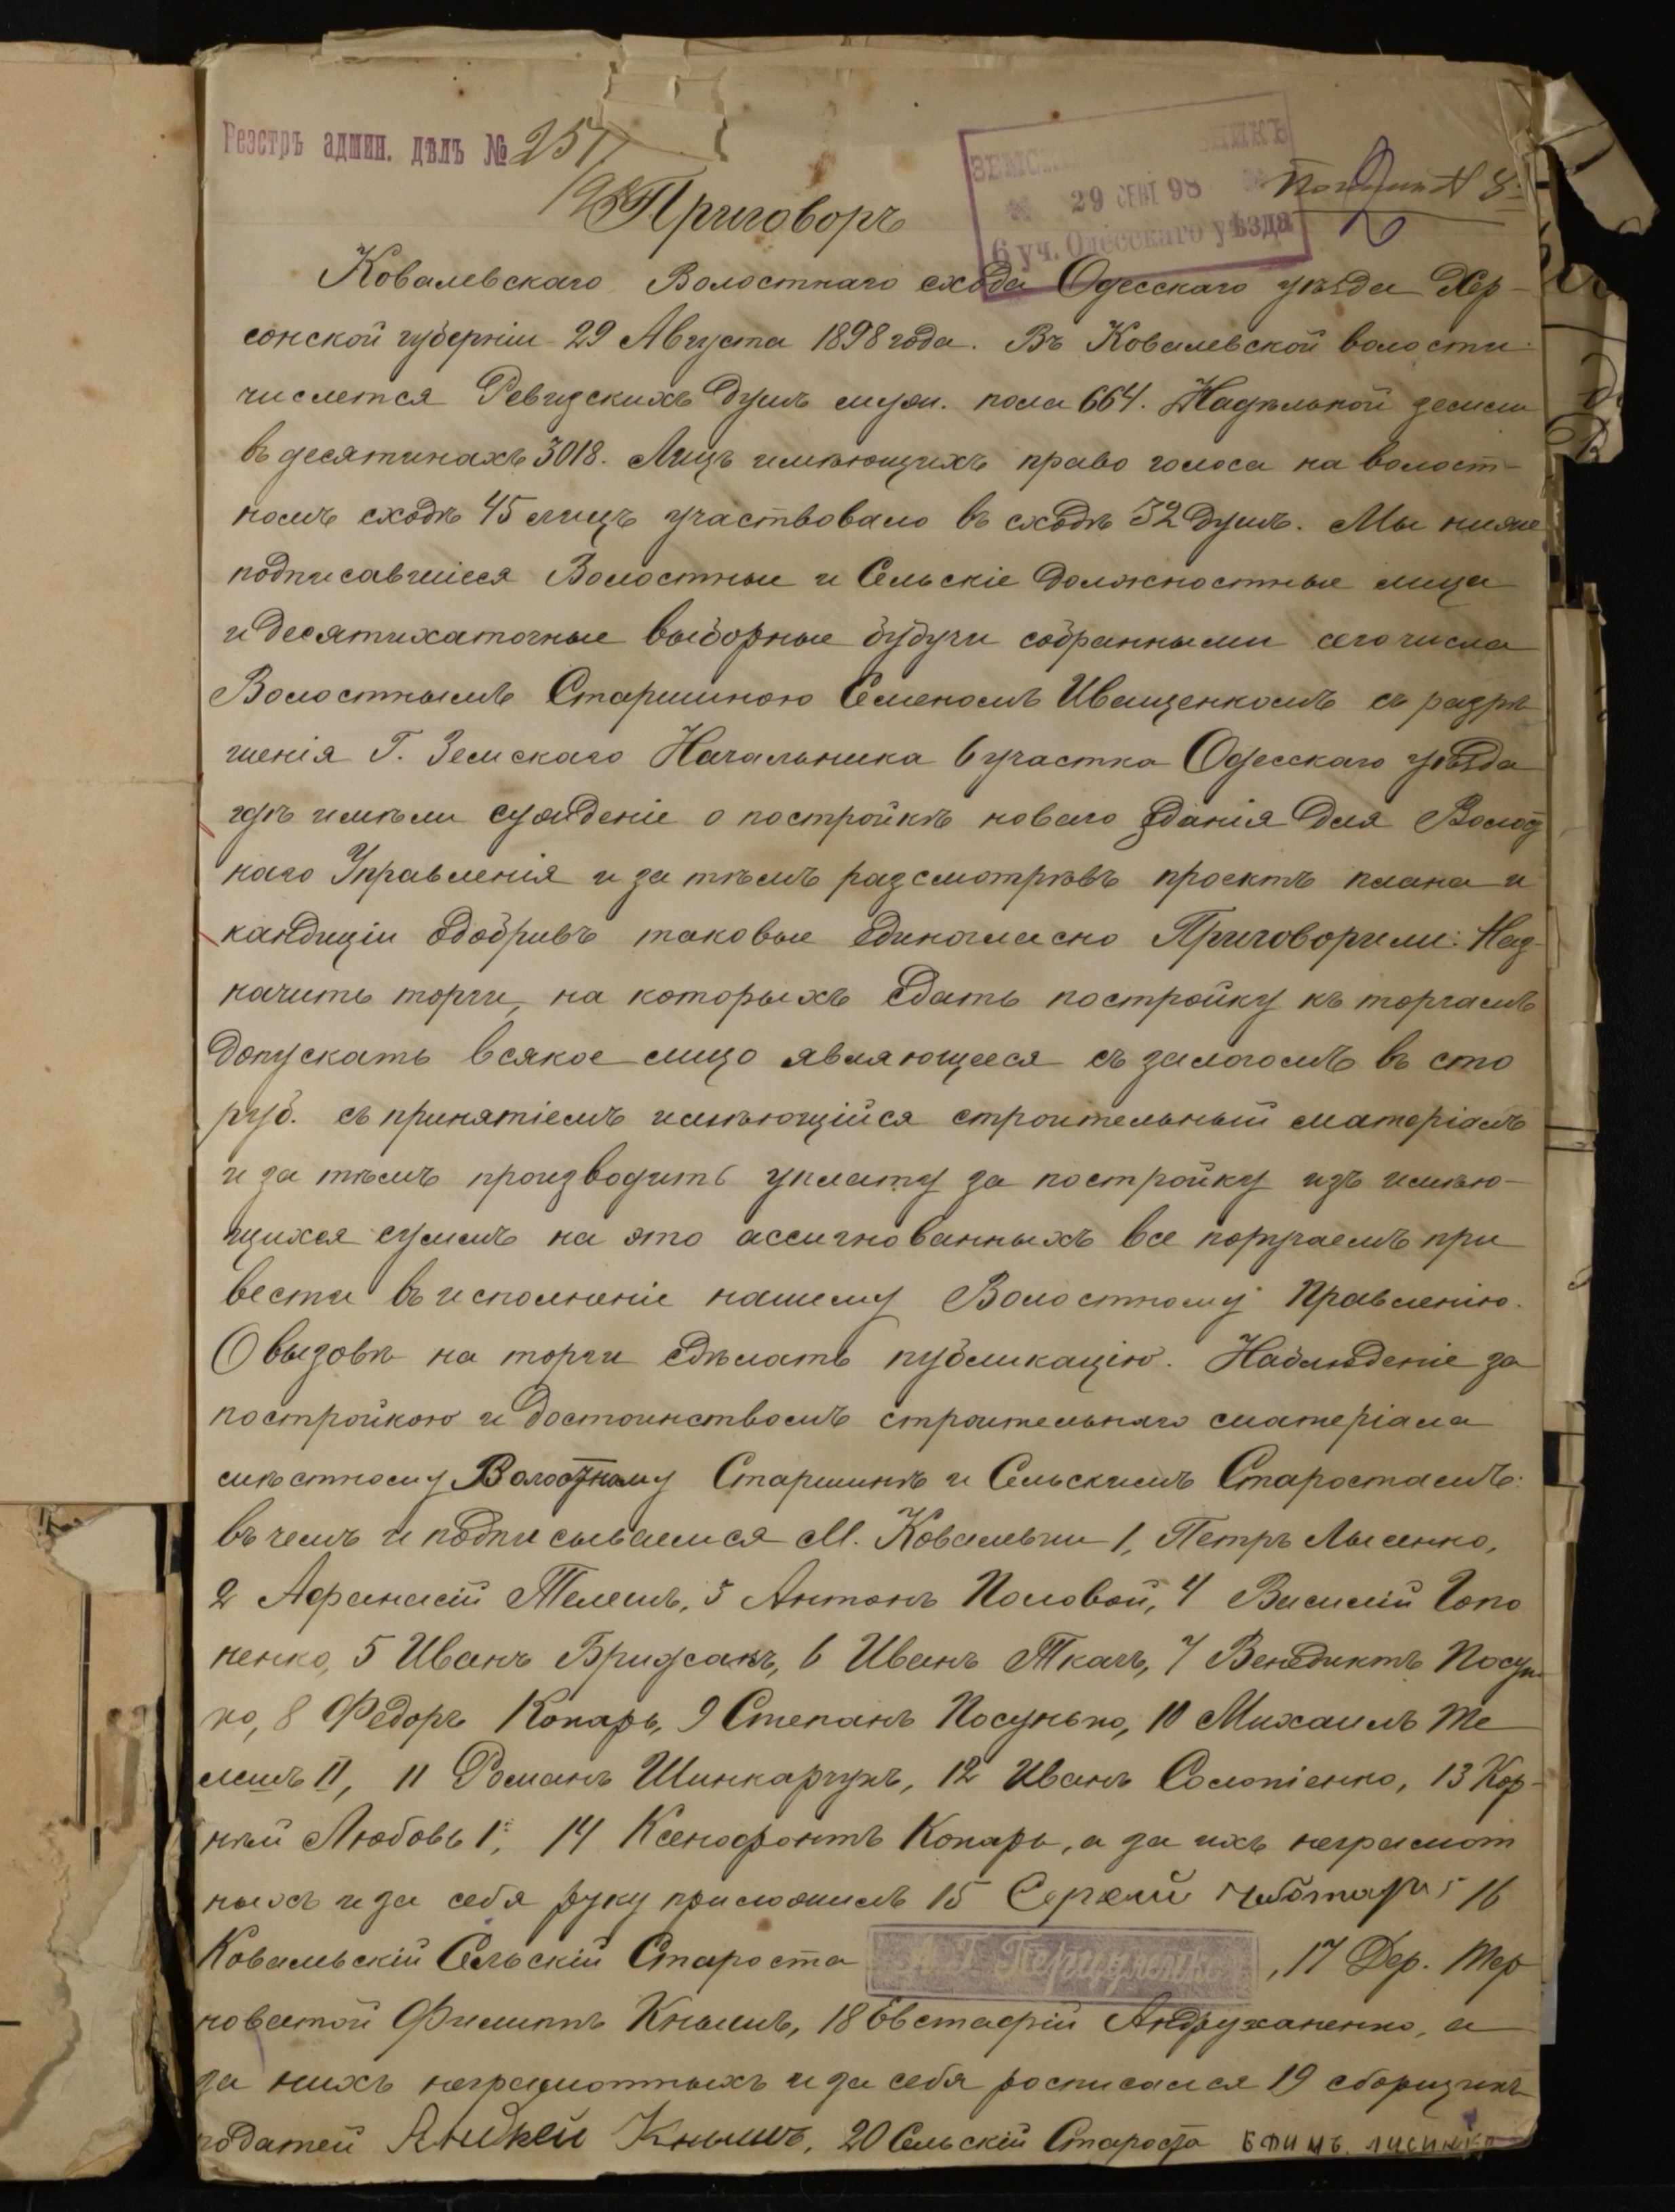 Реэстръ админ. дѣлъ № 257/98
29 СЕНТ 98
6 уч. Одесскаго уѣзда
Приговоръ
Ковалевскаго Волостнаго схода Одесскаго уѣзда Хер-
сонской губерніи 29 Августа 1898 года. Въ Ковалевской волости
числется Ревизскихъ душъ муж. пола 664. Надѣльной земли
въ десятинахъ 3018. Лицъ имѣющихъ право голоса на волост-
номъ сходѣ 45 лицъ участвовало въ сходѣ 32 душъ. Мы ниже
подписавшіеся Волостные и Сельскіе должностные лица
и десятихаточные выборные будучи собранными сего числа
Волостнымъ Старшиною Семеномъ Иващенкомъ съ разрѣ
шенія Г. Земскаго Начальника 6 участка Одесскаго уѣзда
гдѣ имѣли сужденіе о постройкѣ новаго зданія для Волост
наго Управленія и за тѣмъ разсмотрѣвъ проектъ плана и
кандиціи одобривъ таковые единогласно Приговорили: Наз-
начить торги, на которыхъ сдать постройку къ торгамъ
допускать всякое лицо являющееся съ залогомъ въ сто
руб. съ принятіемъ имѣющійся строительный матеріалъ
и за тѣмъ производить уплату за постройку изъ имѣю-
щихся суммъ на это ассигнованныхъ все поручаемъ при
вести въ исполненіе нашему Волостному Правленію.
О вызовѣ на торги сдѣлать публикацію. Наблюденіе за
постройкою и достоинствомъ строительнаго матеріала
мѣстному Волостному Старшинѣ и Сельскимъ Старостамъ:
въ чемъ и подписываемся М. Ковалевки 1, Петръ Лысенко,
2 Афанасій Телешъ, 3 Антонъ Половой, 4 Василій Гопо
ненко, 5 Иванъ Бриджакъ, 6 Иванъ Ткачъ, 7 Венедиктъ Посунь
ко, 8 Федоръ Копарь, 9 Степанъ Посунько, 10 Михаилъ Те
лешъ II, 11 Романъ Шинкарчукъ, 12 Иванъ Солопіенко, 13 Кор-
ній Любовь 1, 14 Ксенофонтъ Копарь, а за ихъ неграмот
ныхъ и за себя руку приложилъ 15 Сергей Чеботарь 16
Ковалевскій Сельскій Староста , 17 Дер. Тер
новатой Филиппъ Кнышъ, 18 Евстафій Андруханенко, а
за нихъ неграмотныхъ и за себя росписался 19 сборщикъ
податей Андрей Кнышъ, 20 Сельскій Староста Ефимъ лисинко